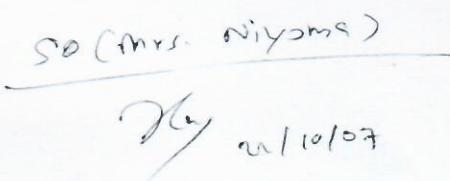 SO (Mrs. Niyoma)
22/10/07